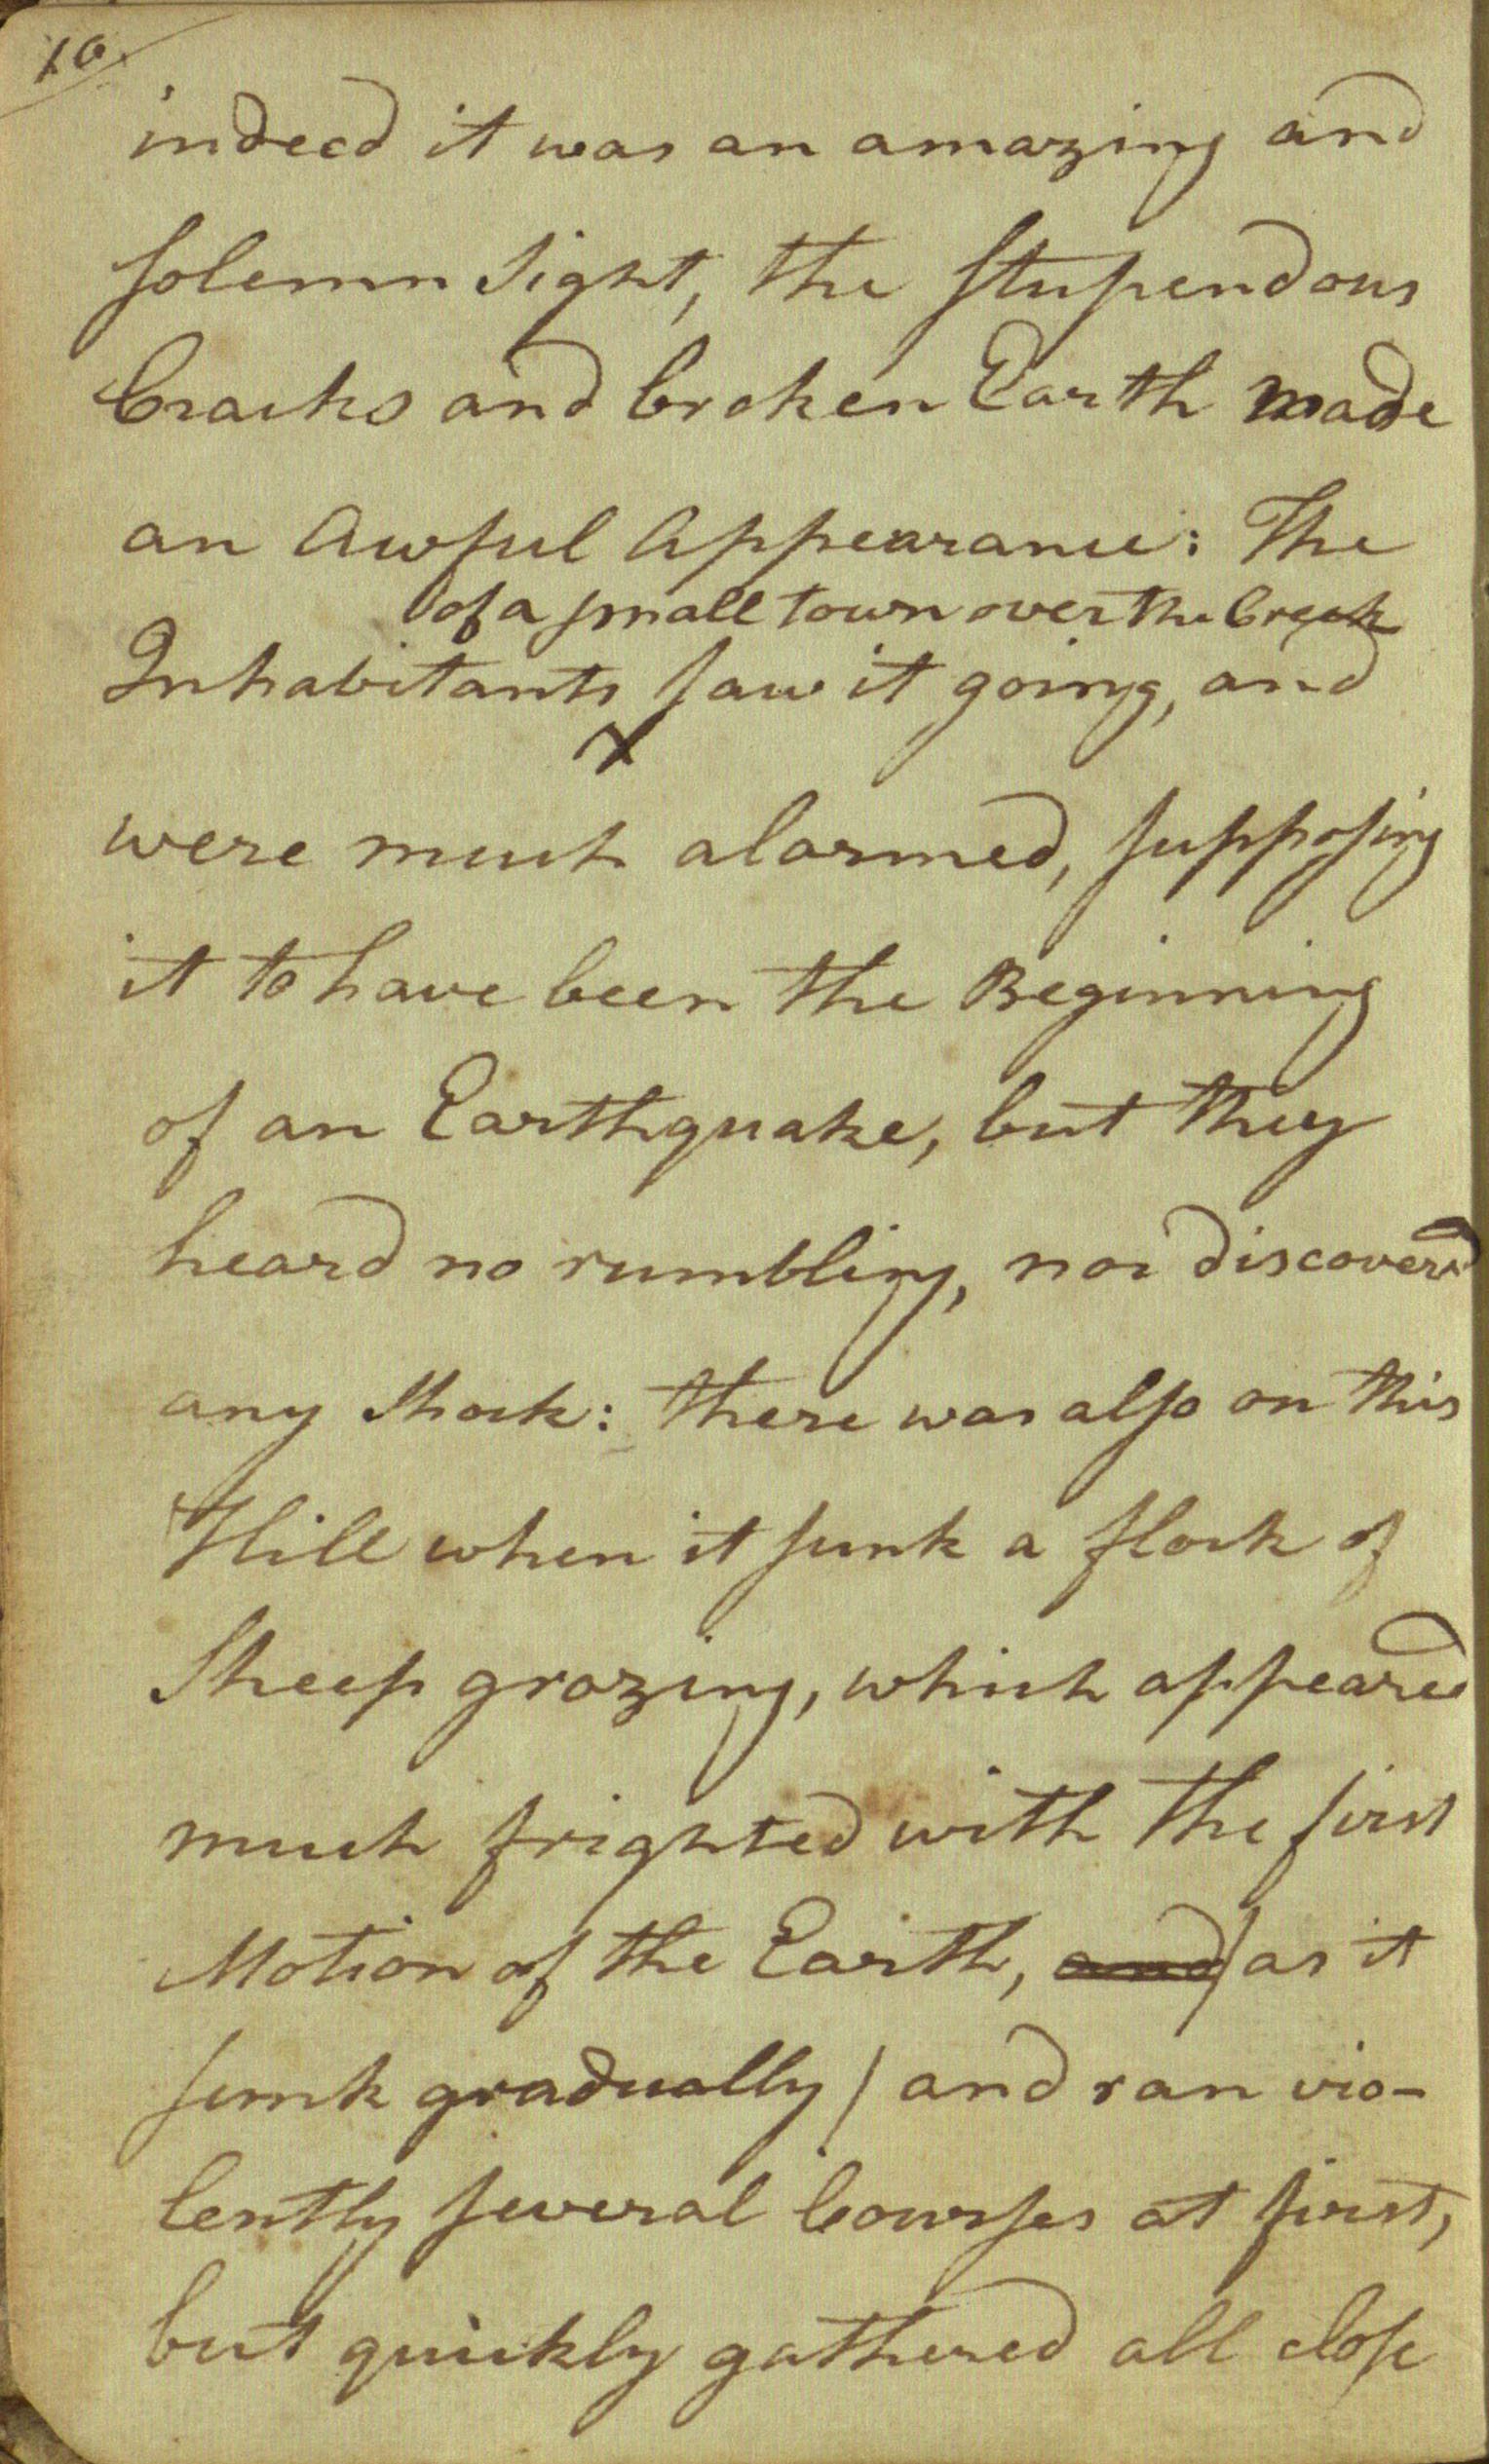 10.
indeed it was an amazing and
solemn Sight, the Stupendous
Cracks and broken Earth made
an Awful Appearance: The
of a small town over the Creek
Inhabitants saw it going, and
x
were much alarmed, supposing
it to have been the Beginning
of an Earthquake, but they
heard no rumbling, nor discovered
any Shock: there was also on this
Hill when it sunk a flock of
Sheep grazing, which appeared
much frighted with the first
Motion of the Earth, and / as it
sunk gradually / and ran vio-
lently several Courses at first,
but quickly gathered all close